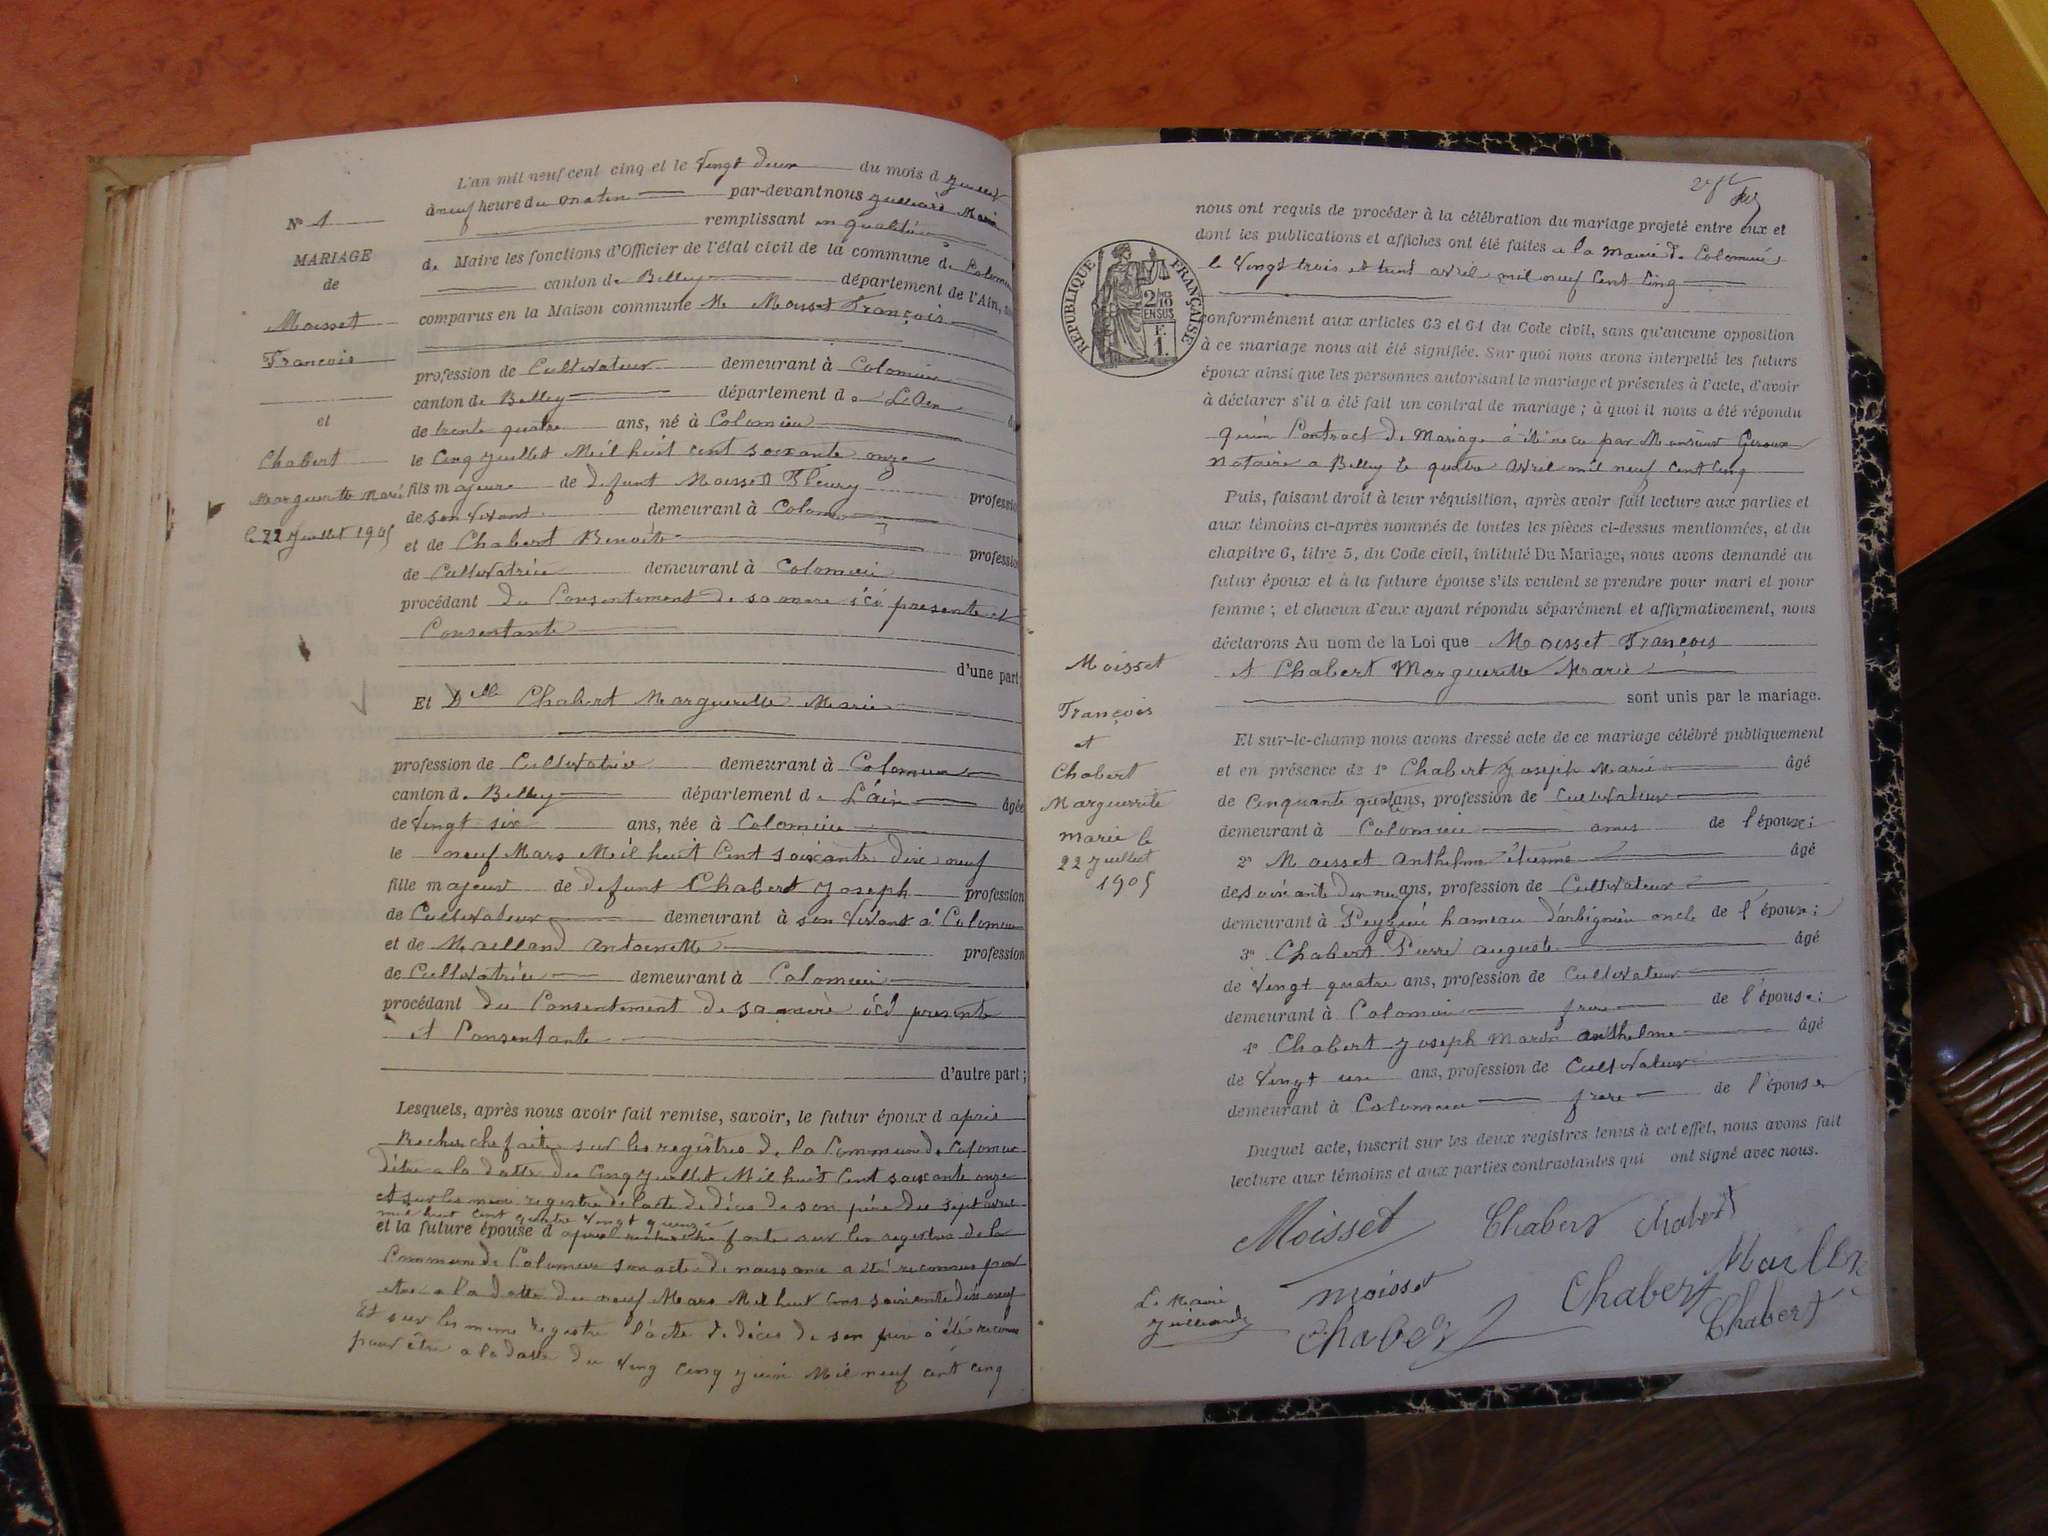 L'an mil neuf cent cinq et le Vingt deux du mois d Juillet
à neuf heure du matin par-devant nous Juilliard Maire
remplissant en qualité
de Maire les fonctions d'Officier de l'état civil de la commune de Colomieu
canton de Belley département de l'Ain,
comparus en la Maison commune M. Moisset François
profession de Cultivateur demeurant à Colomieu
canton de Belley département de L'Ain
de trente quatre ans, né à Colomieu
le Cinq Juillet Mil huit cent soixante onze
fils majeure de defunt Moisset Fleury profession
de son vivant demeurant à Colomieu
et de Chabert Benoite profession
de Cultivatrice demeurant à Colomieu
procédant du Consentement de sa mere ici presente et
Consentante
d'une part;
Et Delle Chabert Marguerite Marie
profession de Cultivatrice demeurant à Colomieu
canton de Belley département de L'ain âgée
de Vingt six ans, née à Colomieu
le neuf Mars Mil huit Cent soixante dix neuf
fille majeur de defunt Chabert Joseph profession
de Cultivateur demeurant à son vivant a Colomieu
et de Mailland Antoinette profession
de Cultivatrice demeurant à Colomieu
procédant du Consentement de sa mere ici presente
et Consentante
d'autre part;
Lesquels, après nous avoir fait remise, savoir, le futur époux d apres
Recherche faite sur les registres de la Commune de Colomieu
d'être a la datte du Cinq Juillet Mil huit Cent soixante onze
et sur les meme registre de l'acte de décès de son père du sept avril
mil huit cent quatre vingt quinze
et la future épouse d apres recherche faite sur les registres de la
Commune de Colomieu son acte de naissance a été reconnus pour
etre a la datte du neuf Mars Mil huit Cent soixante dix neuf
Et sur les meme registre l'acte de décès de son père a été reconnu
pour être a la datte du Ving cinq Juin Mil neuf cent cinq
N° 1
MARIAGE
de
Moisset
François
et
Chabert
Marguerite Marie
le 22 Juillet 1905
nous ont requis de procéder à la célébration du mariage projeté entre eux et
dont les publications et affiches ont été faites a la Mairie de Colomieu
le Vingt trois et trent avril mil neuf Cent Cinq
conformément aux articles 63 et 64 du Code civil, sans qu'aucune opposition
à ce mariage nous ait été signifiée. Sur quoi nous avons interpellé les futurs
époux ainsi que les personnes autorisant le mariage et présentes à l'acte, d'avoir
à déclarer s'il a été fait un contrat de mariage; à quoi il nous a été répondu
qu'un Contract de Mariage à été recu par Monsieur Giroux
notaire a Belley le quatre Avril mil neuf cent cinq
Puis, faisant droit à leur réquisition, après avoir fait lecture aux parties et
aux témoins ci-après nommés de toutes les pièces ci-dessus mentionnées, et du
chapitre 6, titre 5, du Code civil, intitulé Du Mariage, nous avons demandé au
futur époux et à la future épouse s'ils veulent se prendre pour mari et pour
femme; et chacun d'eux ayant répondu séparément et affirmativement, nous
déclarons Au nom de la Loi que Moisset François
et Chabert Marguerite Marie
sont unis par le mariage.
Et sur-le-champ nous avons dressé acte de ce mariage célébré publiquement
et en présence de 1° Chabert Joseph Marie âgé
de Cinquante quatre ans, profession de Cultivateur
demeurant à Colomieu amis de l'époux;
2° Moisset Anthelme Etienne âgé
de soixante dix neuf ans, profession de Cultivateur
demeurant à Peyzieu hameau d'arbignieu oncle de l'époux;
3° Chabert Pierre auguste âgé
de Vingt quatre ans, profession de Cultivateur
demeurant à Colomieu frere de l'épouse;
4° Chabert Joseph Marie anthelme âgé
de Vingt un ans, profession de Cultivateur
demeurant à Colomieu frere de l'épouse
Duquel acte, inscrit sur les deux registres tenus à cet effet, nous avons fait
lecture aux témoins et aux parties contractantes qui ont signé avec nous.
Moisset Chabert Chabert
Mailland
Moisset Chabert
Chabert Chabert
Le Maire
Juilliard
RÉPUBLIQUE FRANÇAISE
2/10
EN SUS
F.
1.
Moisset
François
et
Chabert
Marguerite
Marie le
22 Juillet
1905